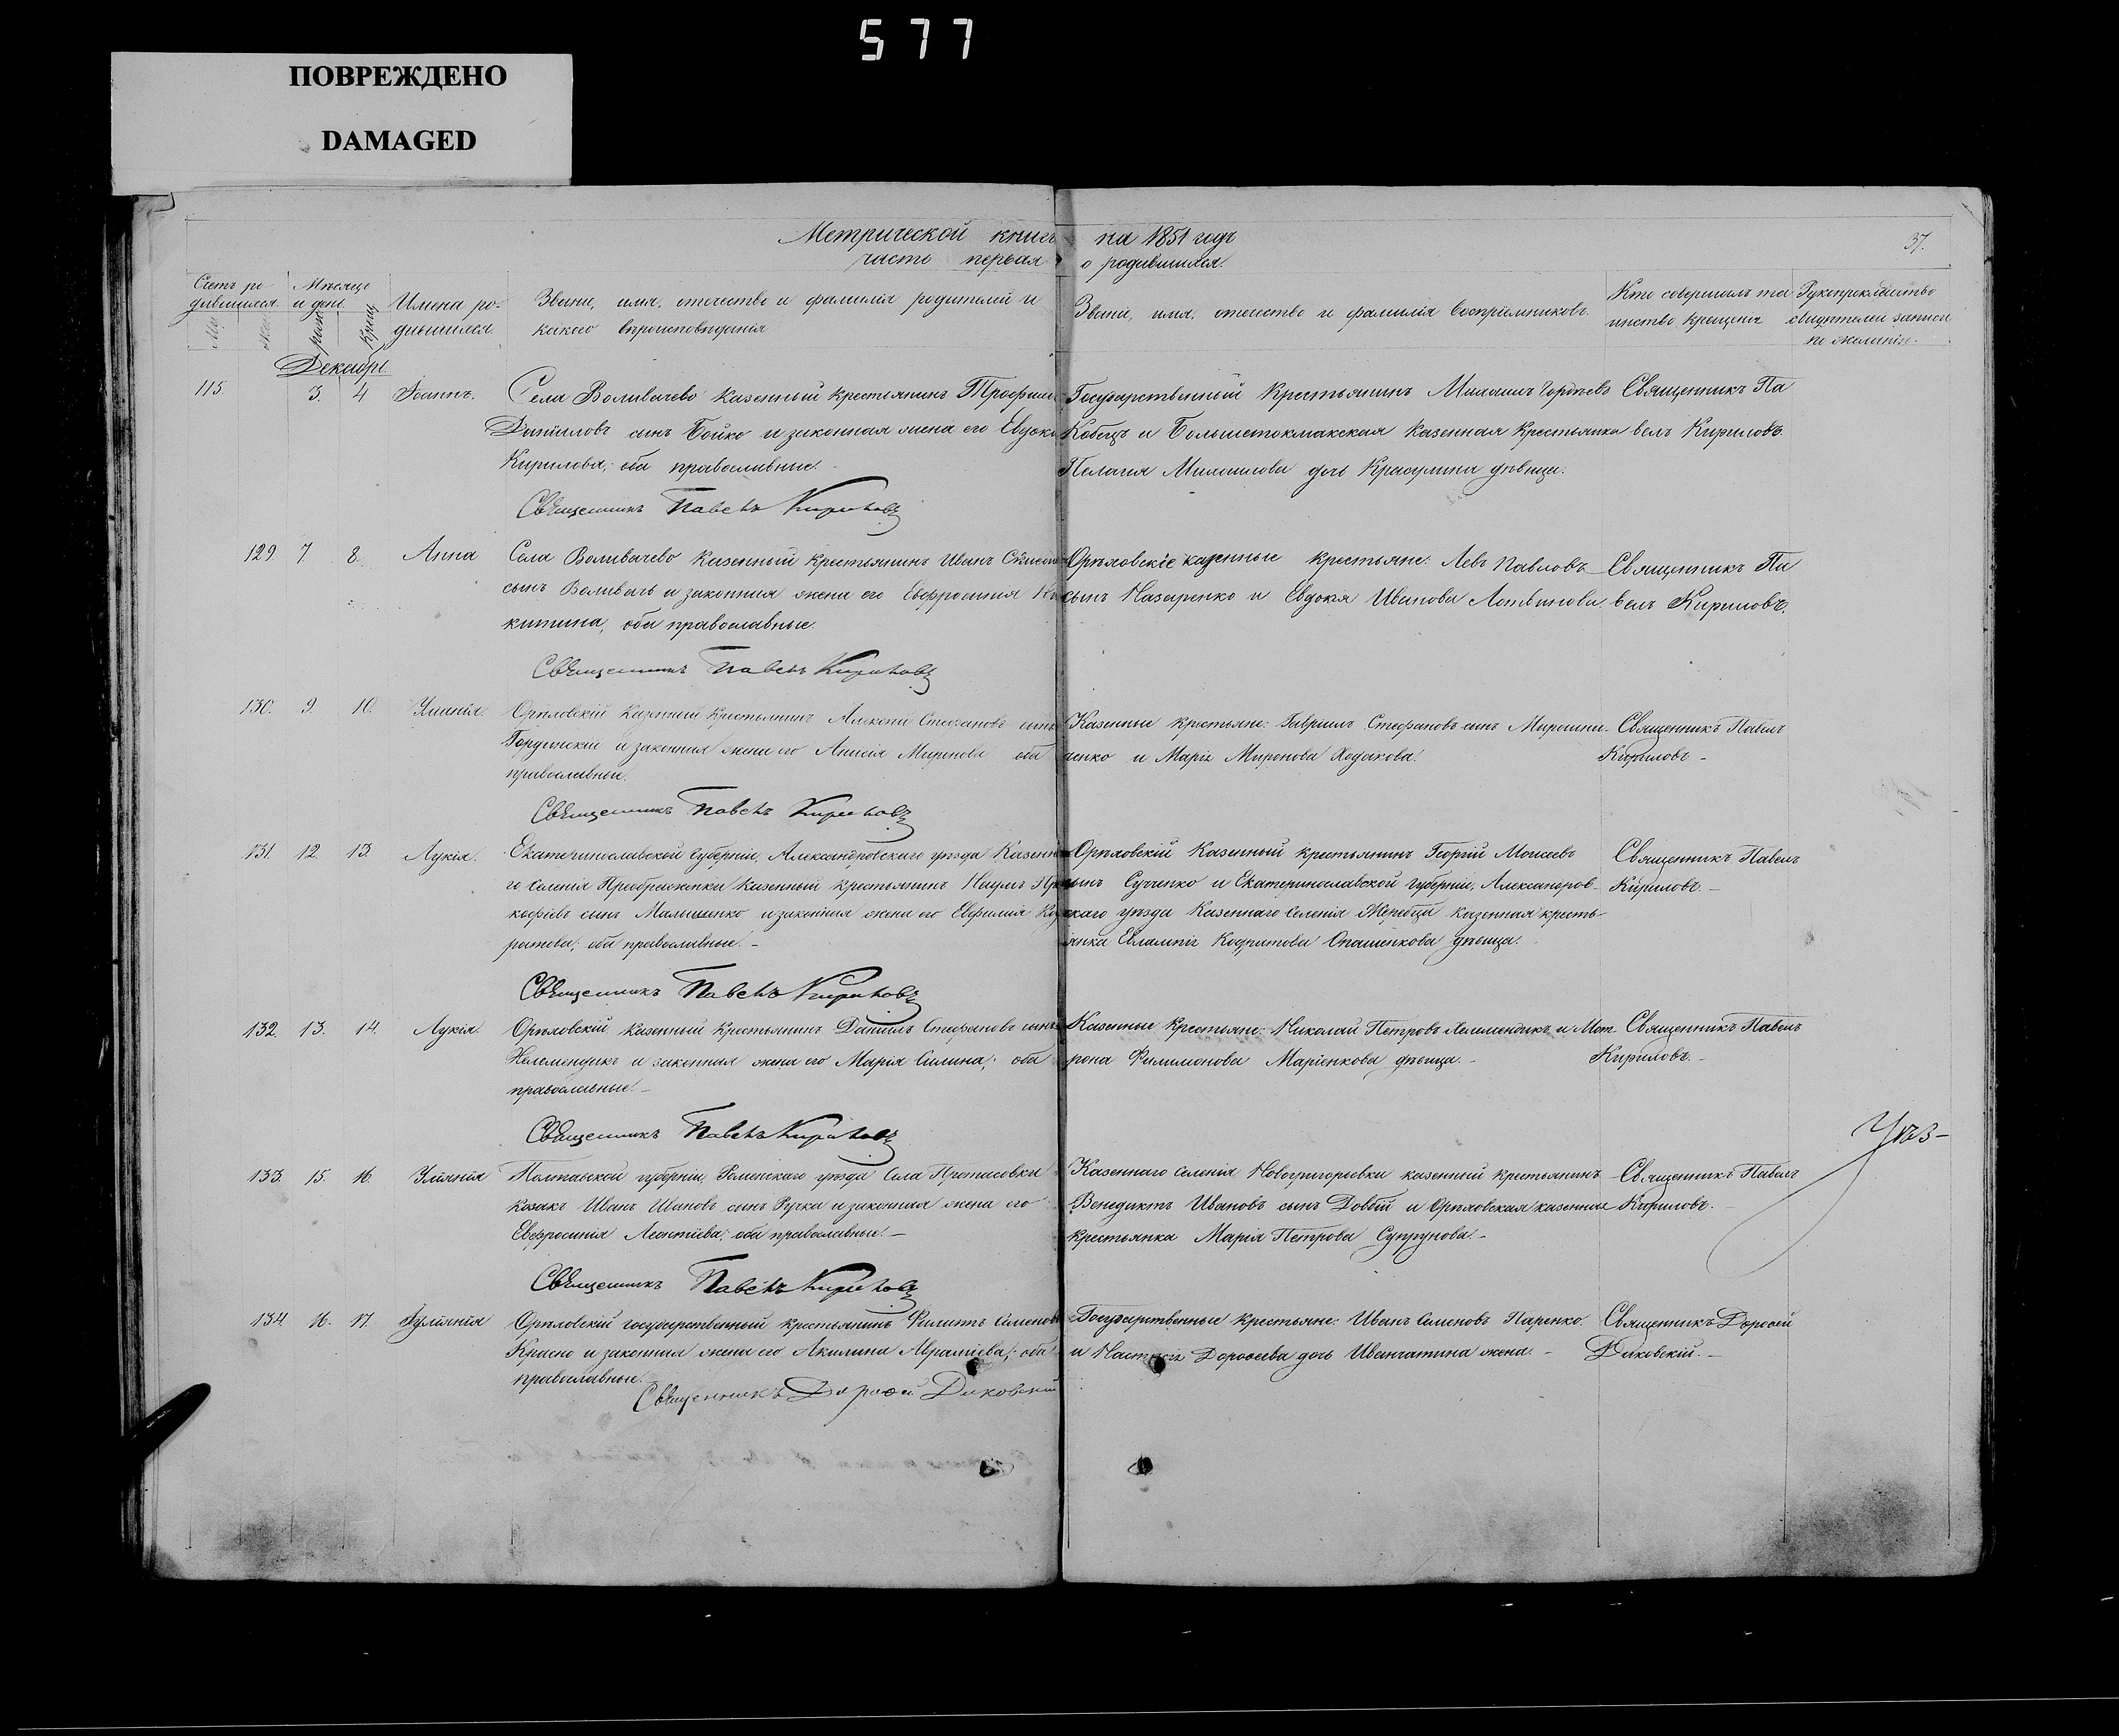 577
ПОВРЕЖДЕНО
DAMAGED
Метрической книги на 1851 годъ
37.
часть первая о родившихся.
Счетъ ро
дившихся.
Месяцъ
и день.
Имена ро-
дившихся.
Званіе, имя, отечество и фамилія родителей и
какого вѣроисповѣданія
Званіе, имя, отечество и фамилія воспріемниковъ.
Кто совершалъ та
инство крещенія
Рукоприкладство
свидѣтелей записи
по желанію.
Декабрь
115. 3. 4 Іоаннъ.
Села Воливачево казенный крестьянинъ Трофимъ
Даніиловъ сынъ Бойко и законная жена его Евдокі
Кирилова; оба православные.
Священникъ Павелъ Кириловъ
Государственный крестьянинъ Михаилъ Гордѣевъ
Кобецъ и Большетокмакская казенная крестьянка
Пелагея Михаилова дочь Красулина дѣвица.
Священникъ Па
велъ Кириловъ.
129 7 8. Анна
Села Воливачево казенный крестьянинъ Иванъ
сынъ Воливачъ и законная жена его Евфросинія Ни
китина, оба православные.
Священникъ Павелъ Кириловъ
Орѣховскіе казенные крестьяне: Левъ Павловъ
сынъ Назаренко и Евдокія Иванова Литвинова.
Священникъ Па
велъ Кириловъ.
130. 9. 10. Уліанія.
Орѣховскій казенный крестьянинъ Алексій Стефановъ сынъ
и законная жена его Анисія Миронова оба
православные.
Священникъ Павелъ Кириловъ
Казенные крестьяне: Гавріилъ Стефановъ сынъ Мирошни-
ченко и Марія Миронова Ходакова.
Священникъ Павелъ
Кириловъ –
131. 12. 13. Лукія.
Екатеринославской губерніи, Александровскаго уѣзда Казенна
го селенія Преображенки казенный крестьянинъ Наумъ Про
кофіевъ сынъ Малышенко и законная жена его Евфимія Код
ратова; оба православные. –
Священникъ Павелъ Кириловъ
Орѣховскій казенный крестьянинъ Георгій Моисеевъ
сынъ Сученко и Екатеринославской губерніи, Александров-
скаго уѣзда казеннаго селенія Жеребца казенная кресть-
янка Евлампія Кодратова Опашенкова дѣвица.
Священникъ Павелъ
Кириловъ. –
132. 13. 14. Лукія.
Орѣховскій казенный крестьянинъ Даніилъ Стефановъ сынъ
Хелемендикъ и законная жена его Марія Силина; оба
православные. –
Священникъ Павелъ Кириловъ
Казенные крестьяне: Николай Петровъ Хелемендикъ и Мат
рона Филимонова Маріенкова дѣвица. –
Священникъ Павелъ
Кириловъ. –
Уѣз-
133. 15. 16. Уліянія
Полтавской губерніи, Роменскаго уѣзда села Протасовки
козакъ Иванъ Ивановъ сынъ Ручка и законная жена его
Евфросинія Леонтіева; оба православные. –
Священникъ Павелъ Кириловъ
Казеннаго селенія Новогригорьевки казенный крестьянинъ
Венедиктъ Ивановъ сынъ Довбій и Орѣховская казенная
крестьянка Марія Петрова Супрунова. –
Священникъ Павелъ
Кириловъ. –
134. 16. 17. Іуліянія
Орѣховскій государственный крестьянинъ Филиппъ Семеновъ
Красно и законная жена его Акилина Авраміева; оба
православные.
Священникъ Дорофей Диковскій
Государственные крестьяне: Иванъ Семеновъ Паренко.
и Настасія Дорофеева дочь Иванчатина жена. –
Священникъ Дорофей
Диковскій. –